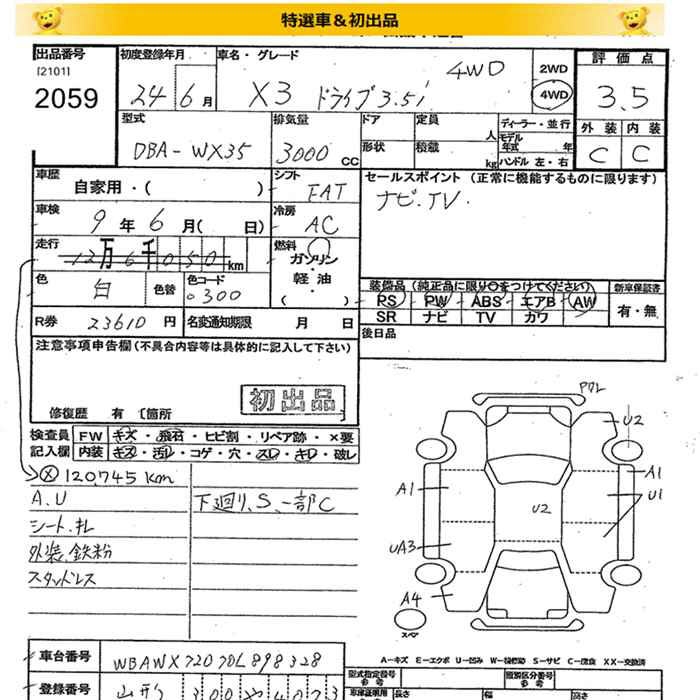 特選車＆初出品
出品番号
[2101]
2059
初度登録年月
24 6月
車名・グレード
X3 ドライブ3.5i 4WD
2WD
4WD
評価点
3.5
外装 内装
C C
型式
DBA-WX35
排気量
3000cc
ドア
定員
人
形状
積載
kg
ディーラー・並行
モデル
年式 年
ハンドル 左・右
車歴
自家用・( )
シフト
FAT
セールスポイント (正常に機能するものに限ります)
ナビ.TV.
車検
9年6月( 日)
冷房
AC
走行
12万6千050km
燃料
ガソリン・軽油・( )
色
白
色替
色コード
0300
装備品 (純正品に限り○をつけてください)
PS PW ABS エアB AW
SR ナビ TV カワ
新車保証書
有・無
R券 23610円
名変通知期限 月 日
後日品
注意事項申告欄(不具合内容等は具体的に記入して下さい)
初出品
修復歴 有 〔箇所
検査員 FW キズ・飛石・ヒビ割・リペア跡・×要
記入欄 内装 キズ・汚レ・コゲ・穴・スレ・キレ・破レ
ⓧ 120,745km
A.U
シート.キレ
外装.鉄粉
スタッドレス
下廻り.S.一部C
U2
A1
A1
U1
U2
UA3
A4
スペア
A-キズ E-エクボ U-凹み W-補修跡 S-サビ C-腐食 XX-交換済
車台番号 WBAWX72070L898328
型式指定番号
参考
類別区分番号
参考
登録番号 山形 300
長さ
幅
高さ